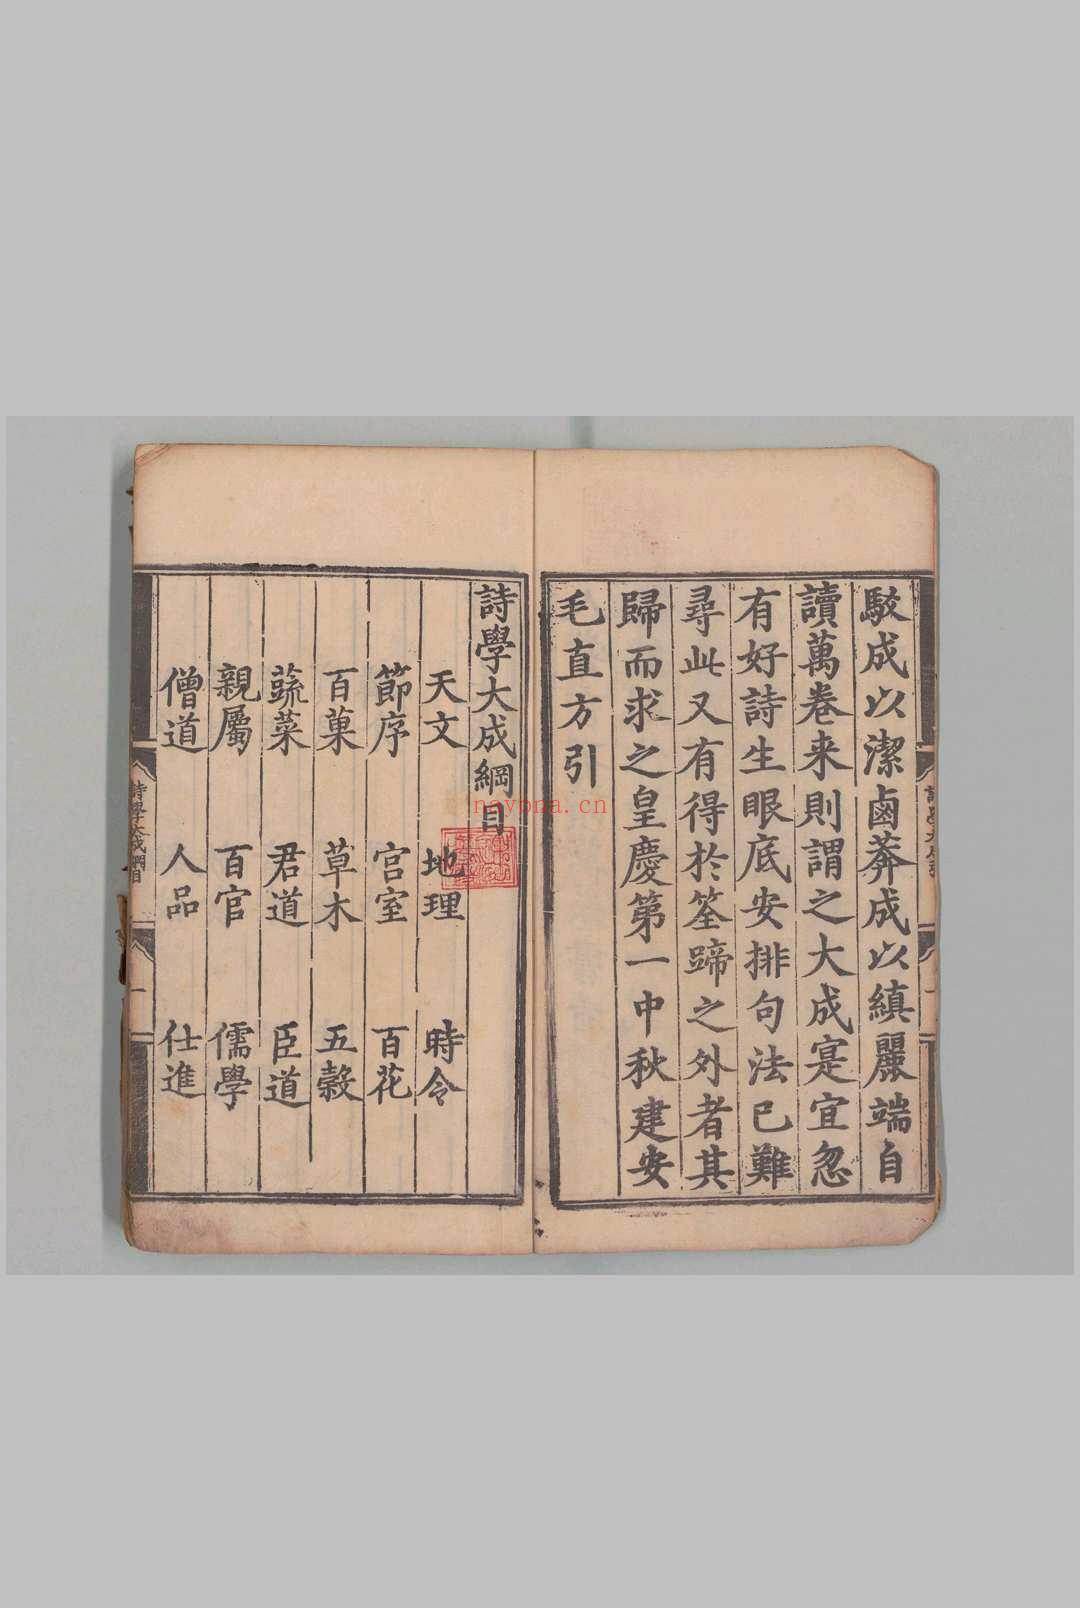 駁成以潔鹵莽成以縝麗端自
讀萬卷来則謂之大成寔宜忽
有好詩生眼底安排句法已難
尋此又有得於筌蹄之外者其
歸而求之皇慶第一中秋建安
毛直方引
詩學大成綱目
天文 地理 時令
節序 宮室 百花
百菓 草木 五穀
蔬菜 君道 臣道
親屬 百官 儒學
僧道 人品 仕進
詩學大成綱目 一
nayona.cn